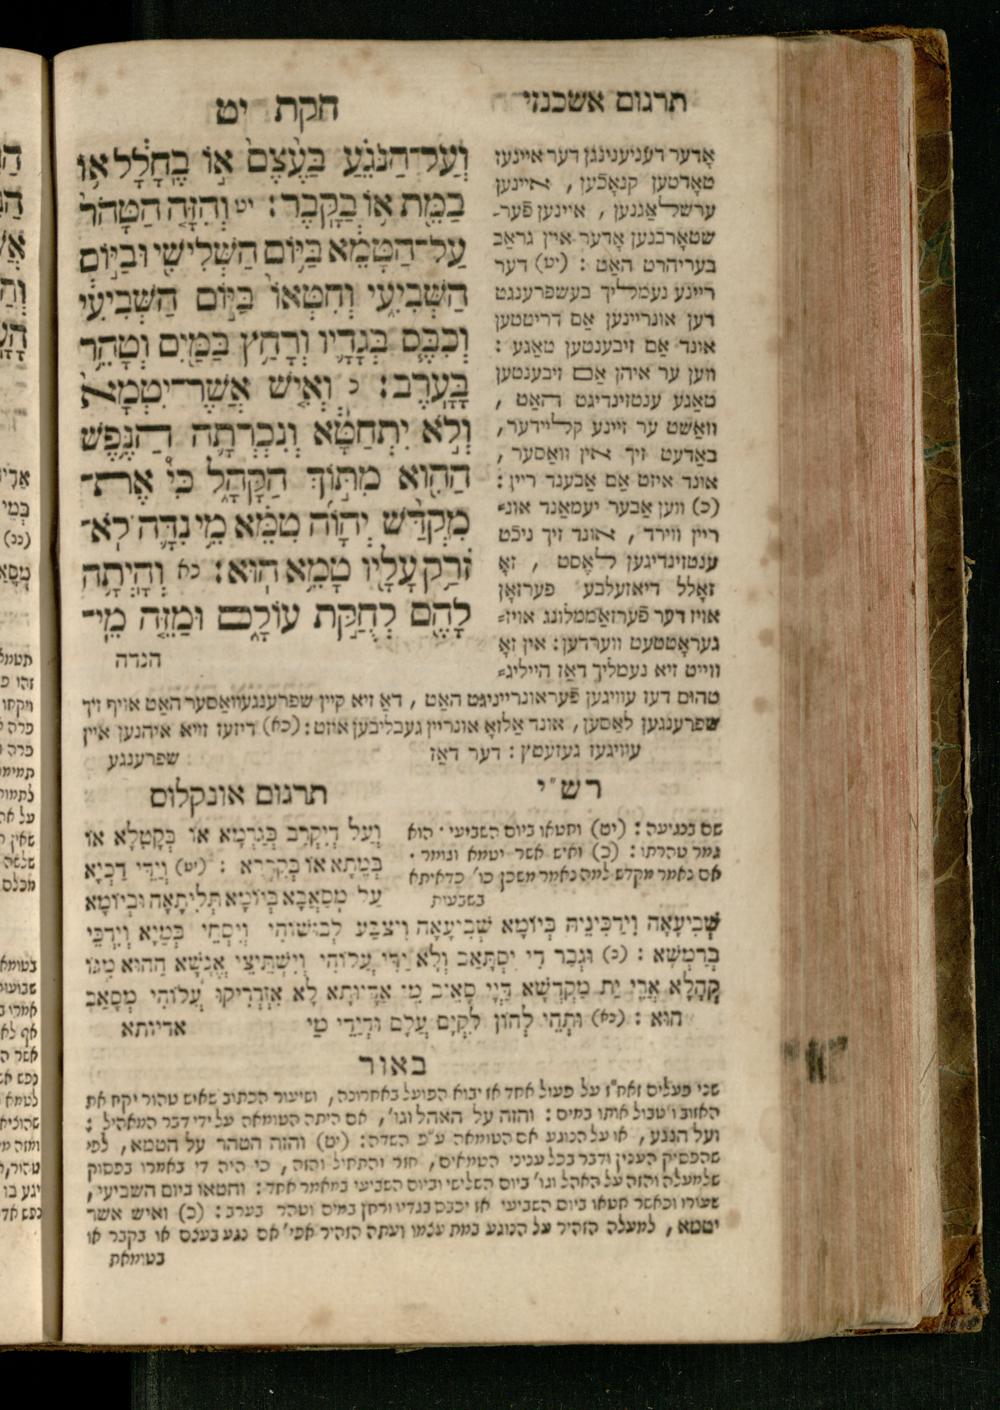 חקת יט
תרגום אשכנזי
וְעַל־הַנֹּגֵ֗עַ בַּעֶ֙צֶם֙ א֣וֹ בֶֽחָלָ֔ל א֥וֹ
בַמֵּ֖ת א֥וֹ בַקָּֽבֶר׃ יט וְהִזָּ֤ה הַטָּהֹר֙
עַל־הַטָּמֵ֔א בַּיּ֥וֹם הַשְּׁלִישִׁ֖י וּבַיּ֣וֹם
הַשְּׁבִיעִ֑י וְחִטְּאוֹ֙ בַּיּ֣וֹם הַשְּׁבִיעִ֔י
וְכִבֶּ֧ס בְּגָדָ֛יו וְרָחַ֥ץ בַּמַּ֖יִם וְטָהֵ֥ר
בָּעָֽרֶב׃ כ וְאִ֤ישׁ אֲשֶׁר־יִטְמָא֙
וְלֹ֣א יִתְחַטָּ֔א וְנִכְרְתָ֛ה הַנֶּ֥פֶשׁ
הַהִ֖וא מִתּ֣וֹךְ הַקָּהָ֑ל כִּי֩ אֶת־
מִקְדַּ֨שׁ יְהוָ֜ה טִמֵּ֗א מֵ֥י נִדָּ֛ה לֹֽא־
זֹרַ֥ק עָלָ֖יו טָמֵ֥א הֽוּא׃ כא וְהָיְתָ֥ה
לָהֶ֖ם לְחֻקַּ֣ת עוֹלָ֑ם וּמַזֵּ֤ה מֵֽי־
הנדה
אָדער דעניענינגן דער איינעז
טאָדטען קנאָכֿען, איינען
ערשלאַגנען, איינען פֿער־
שטאָרבנען אָדער איין גראַב
בעריהרט האַט : (יט) דער
ריינע נעמליך בעשפרענגט
דען אונריינען אַם דריטטען
אונד אַם זיבענטען טאַגע :
ווען ער איהן אַם זיבענטען
טאַגע ענטזינדיגט האַט,
וואַשט ער זיינע קליידער,
באַדעט זיך אין וואַסער,
אונד איזט אַם אַבענד ריין :
(כ) ווען אַבער יעמאַנד אונ=
ריין ווירד, אונד זיך ניכֿט
ענטזינדיגען לאָסט, זאָ
זאָלל דיאזעלבע פערזאָן
אויז דער פֿערזאַממלונג אויז=
געראָטטעט ווערדען : אין זאָ
ווייט זיא נעמליך דאַז הייליג=
טהום דעז עוויגען פֿעראונרייניגט האַט, דאַ זיא קיין שפרענגעוואַסער האַט אויף זיך
שפרענגען לאַסען, אונד אַלזאָ אונריין געבליבען איזט : (כא) דיזעז זויא איהנען איין
עוויגעז געזעטץ : דער דאַז
שפרענגע
רש״י
שם בנגיעה : (יט) וחטאו ביום השביעי · הוא
גמר טהרתו : (כ) ואיש אשר יטמא וגומר ·
אם נאמר מקדש למה נאמר משכן כו׳ כדאיתא
בשבועות
תרגום אונקלוס
וְעַל דְּיִקְרַב בְּגַרְמָא אוֹ בְקַטְלָא אוֹ
בְמֵתָא אוֹ בְקִבְרָא : (יט) וְיַדֵּי דַכְיָא
עַל מְסַאֲבָא בְּיוֹמָא תְּלִיתָאָה וּבְיוֹמָא
שְׁבִיעָאָה וִידַכִּינֵיהּ בְּיוֹמָא שְׁבִיעָאָה וִיצַבַּע לְבוּשׁוֹהִי וְיַסְחֵי בְמַיָּא וְיִדְכֵּי
בְּרַמְשָׁא : (כ) וּגְבַר דִּי יִסְתָּאַב וְלָא יַדֵּי עֲלוֹהִי וְיִשְׁתֵּיצֵי אֱנָשָׁא הַהוּא מִגּוֹ
קְהָלָא אֲרֵי יַת מַקְדְּשָׁא דַיְיָ סָאֵיב מֵי אַדָּיוּתָא לָא אִזְדְּרִיקוּ עֲלוֹהִי מְסָאַב
הוּא : (כא) וּתְהֵי לְהוֹן לִקְיַם עֲלָם וּדְיַדֵּי מֵי
אדיותא
באור
שני פעלים זאח״ז על פעול אחד אז יבוא הפועל באחרונה, ושיעור הכתוב שאיש טהור יקח את
האזוב ויטבול אותו במים : והזה על האהל וגו׳, אם היתה הטומאה על ידי דבר המאהיל :
ועל הנגע, או על הנוגע אם הטומאה ע״פ השדה : (יט) והזה הטהר על הטמא, לפי
שהפסיק הענין ודבר בכל עניני הטמאים, חזר והתחיל והזה, כי היה די באמרו בפסוק
שלמעלה והזה על האהל וגו׳ ביום השלישי וביום השביעי במאמר אחד : וחטאו ביום השביעי,
שעורו וכאשר חטאו ביום השביעי אז יכבס בגדיו ורחץ במים וטהר בערב : (כ) ואיש אשר
יטמא, למעלה הזהיר על הנוגע במת עצמו ועתה הזהיר אפי׳ אם נגע בעצם או בקבר או
בטומאת